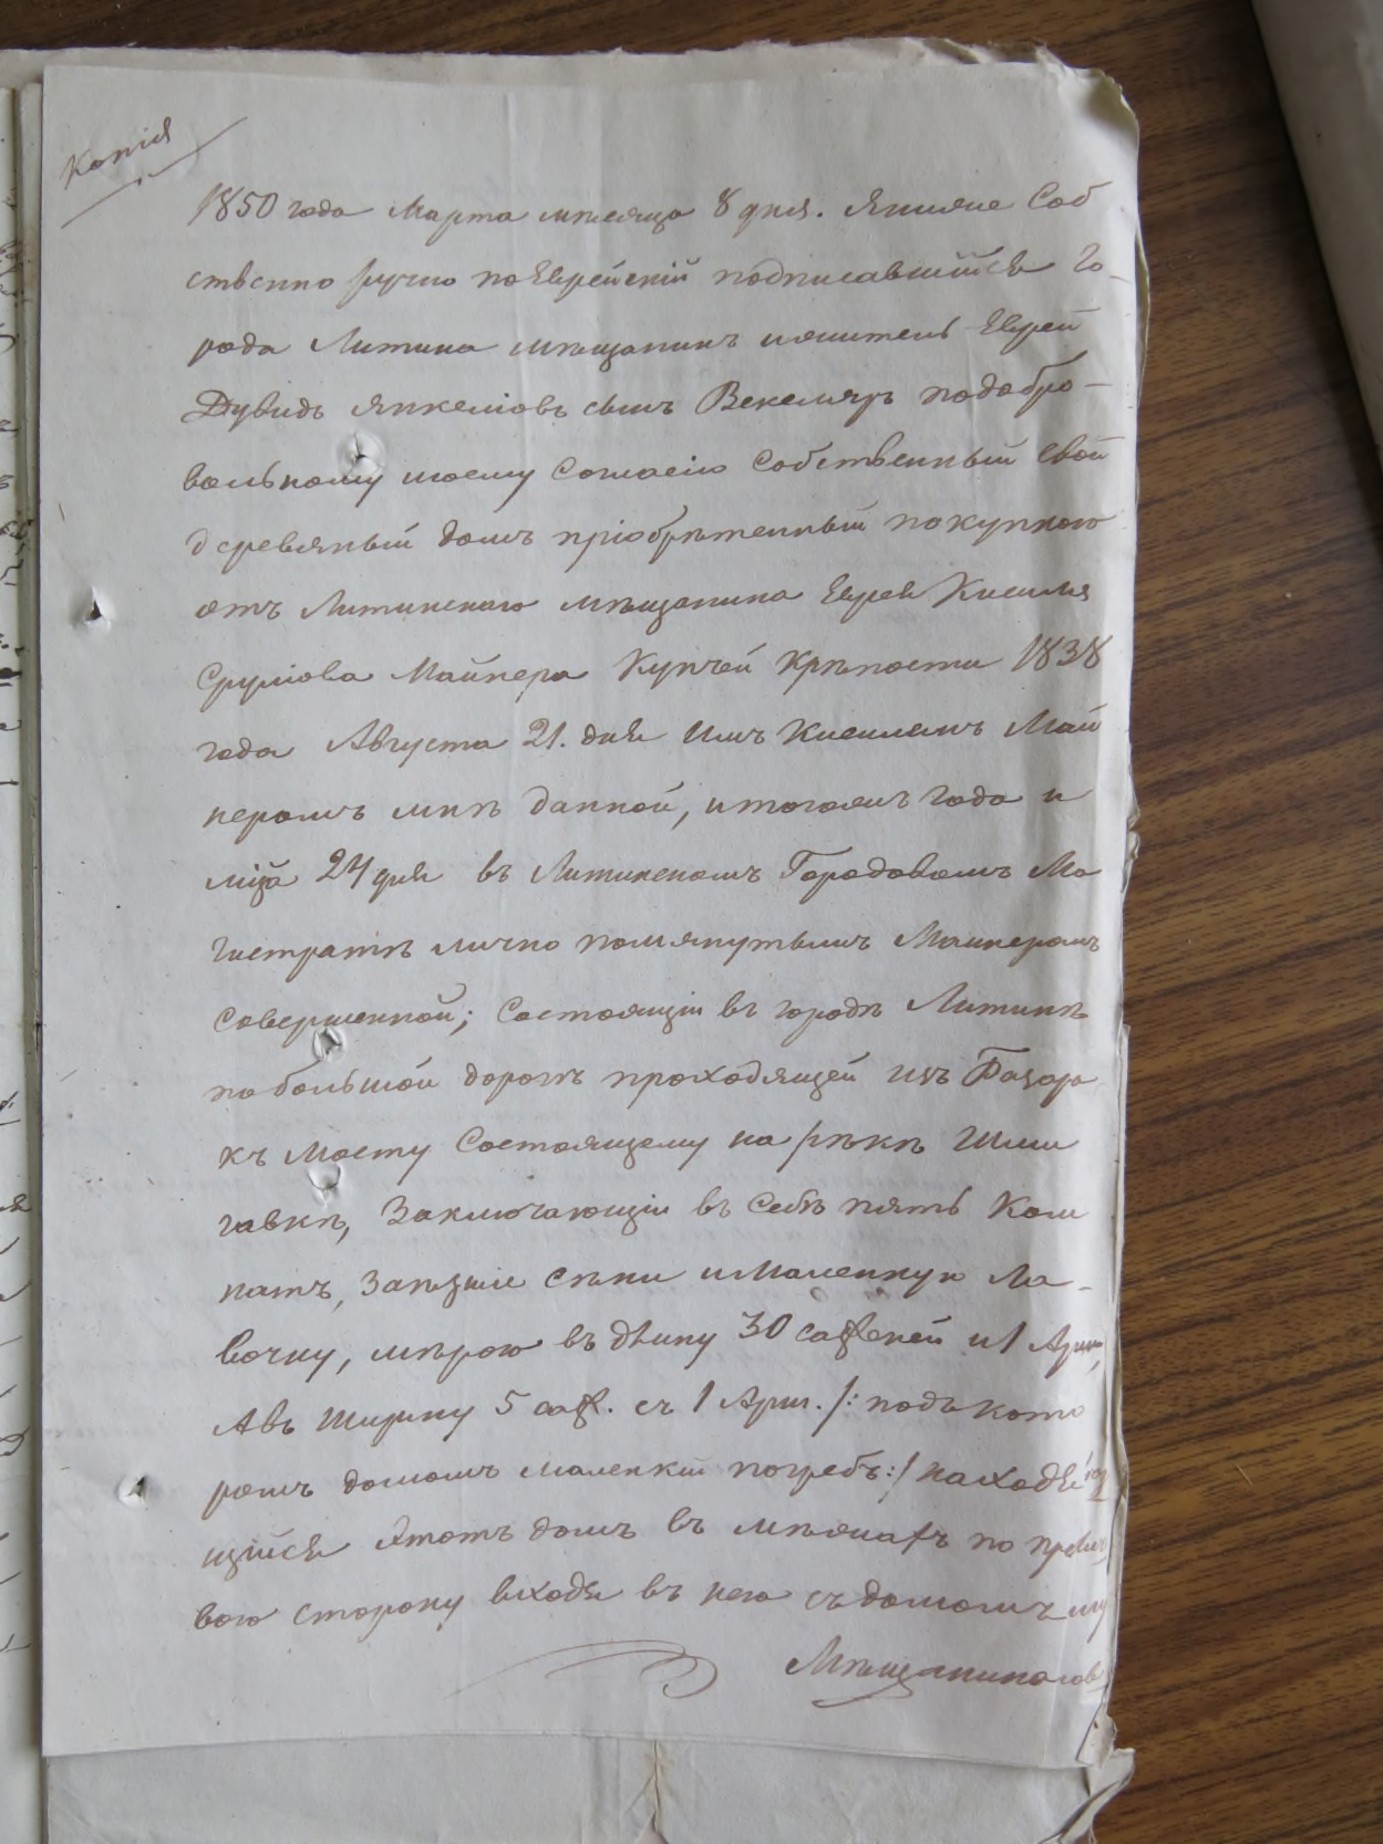 Копія
1850 года Марта мѣсяца 8 дня. Я ниже Соб
ственно ручно поЕврейскій подписавшійся Го-
рода Литина мѣщанинъ и житель Еврей
Дувидъ Янкеліовъ сынъ Вексляръ подобро-
вольному моему Согласію Собственный Свой
деревяный домъ пріобрѣтенный покупкою
отъ Литинского мѣщанина Еврея Кисиля
Сруліова Майнера Купчей Крѣпости 1838
года Августа 21. дня Имъ Кисилемъ Май
неромъ мнѣ данной, итогожъ года и
мца 24 дня въ Литинскомъ Городовомъ Ма
гистратѣ лично помянутымъ Майнеромъ
совершенной; Состоящій въ городѣ Литинѣ
по большой дорогѣ проходящей изъ Базара
къ мосту Состоящему на рѣкѣ Шми
гавкѣ, Заключающій въ Себѣ пять Ком
натъ, Заѣзніе сѣни и Маленкую Ла-
вочку, мѣрою въ длину 30 саженей и 1 Арши,
Авъ Ширину 5 саж. съ 1 Арш. /: подъ кото
ромъ домомъ маленкій погребъ:/ находя
щійся Этотъ домъ въ мѣжахъ по правую
вою сторону входя въ него съ домомъ
Мѣщаниновъ